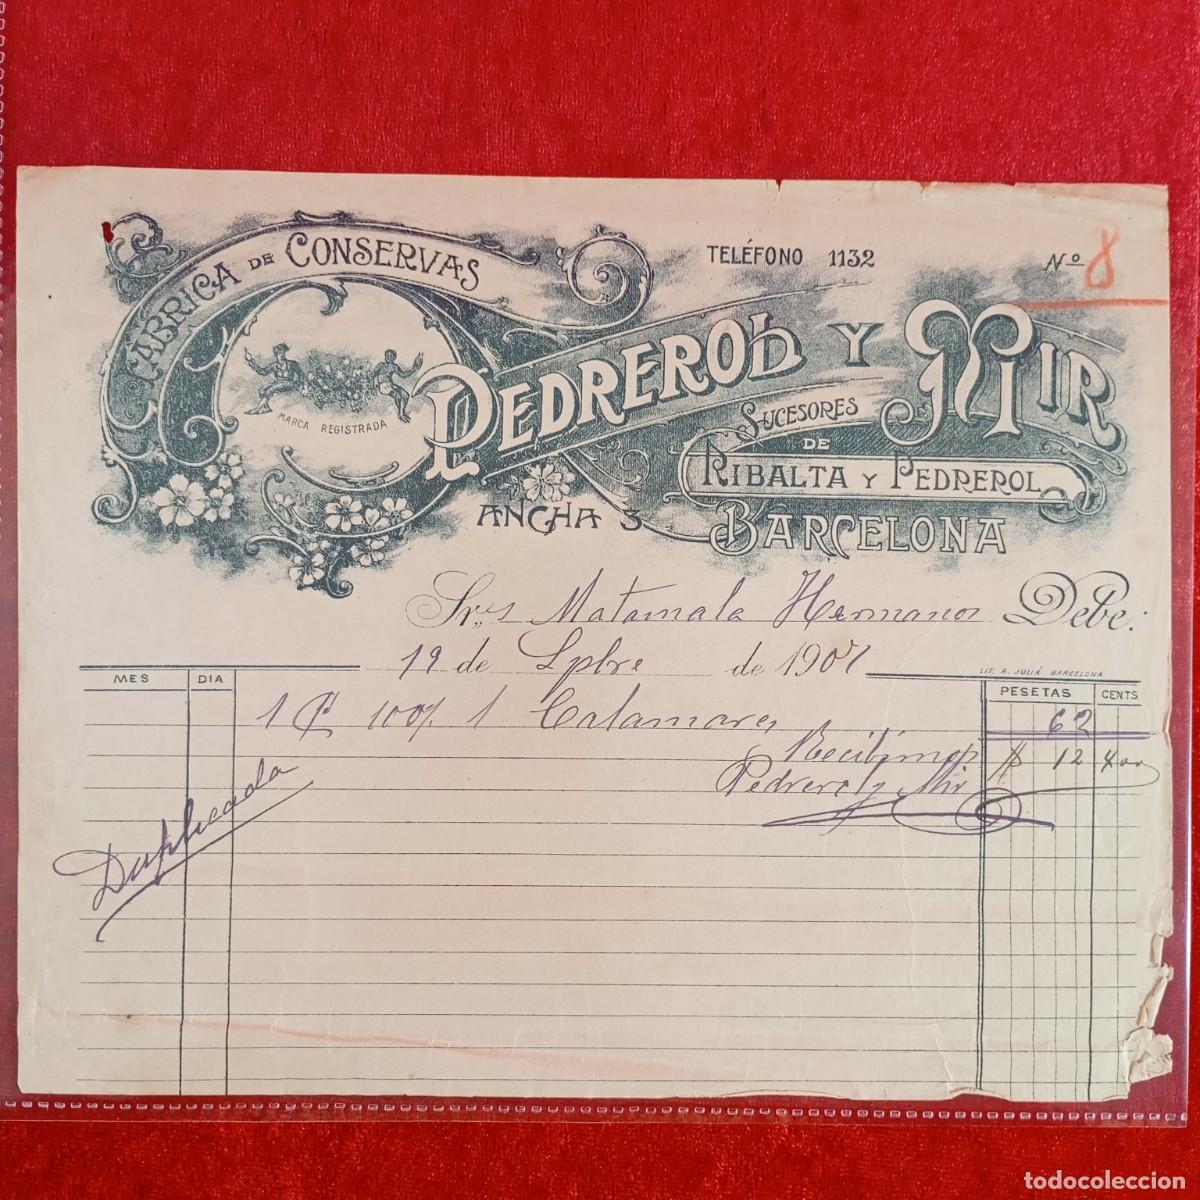 FABRICA DE CONSERVAS
MARCA REGISTRADA
TELÉFONO 1132
Nº 8
PEDREROL Y MIR
SUCESORES
DE
RIBALTA Y PEDREROL
ANCHA 3
BARCELONA
Sres Matamala Hermanos Debe:
19 de Spbre de 1907
LIT. A. JULIÁ BARCELONA
MES DIA PESETAS CENTS
1 100% 1 Calamares 62
Recibimos 12 400
Pedrerol y Mir
Duplicada
todocoleccion